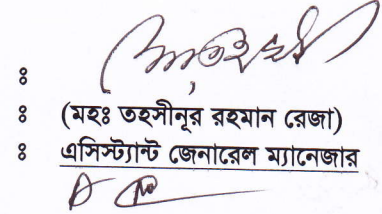 ঃ
ঃ (মহঃ তহসীনূর রহমান রেজা)
ঃ এসিস্ট্যান্ট জেনারেল ম্যানেজার